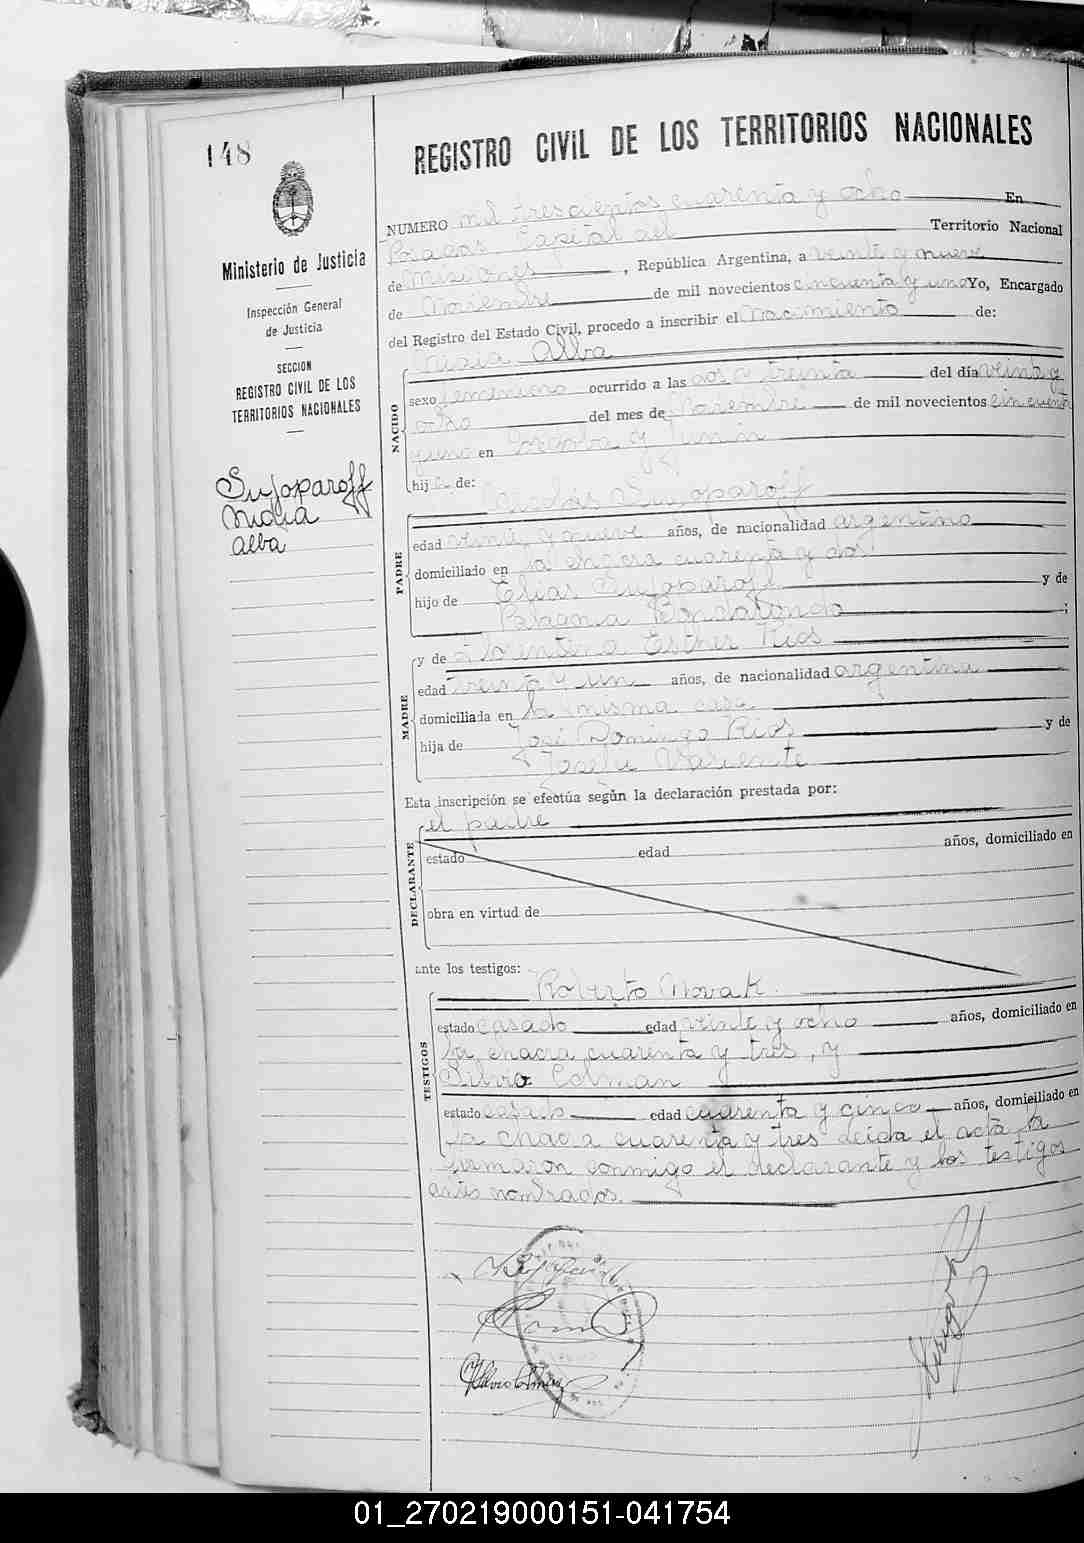 148
REGISTRO CIVIL DE LOS TERRITORIOS NACIONALES
NUMERO mil trescientos cuarenta y ocho En
Posadas Capital del Territorio Nacional
Ministerio de Justicia
de Misiones, República Argentina, a veinte y nueve
de Noviembre de mil novecientos cincuenta y uno Yo, Encargado
Inspección General
de Justicia
del Registro del Estado Civil, procedo a inscribir el nacimiento de:
SECCION
REGISTRO CIVIL DE LOS
TERRITORIOS NACIONALES
Sujoparoff
Alba
NACIDO
Alba
sexo femenino ocurrido a las dos y treinta del día veint y
ocho del mes de Noviembre de mil novecientos cincuenta
y uno en y Junin
hija de:
PADRE
Nicolás Sujoparoff
edad veinte y nueve años, de nacionalidad argentino
domiciliado en la chacra cuarenta y dos
hijo de Elías Sujoparoff y de
Bondarenco ;
MADRE
y de Florentina Esther Rios
edad treinta y un años, de nacionalidad argentina
domiciliada en la misma casa
hija de José Domingo Rios y de
Josefa
Esta inscripción se efectúa según la declaración prestada por:
DECLARANTE
el padre
estado edad años, domiciliado en
obra en virtud de
ante los testigos:
TESTIGOS
Roberto Novak
estado casado edad veinte y ocho años, domiciliado en
la chacra cuarenta y tres, y
Silvio Colman
estado casado edad cuarenta y cinco años, domiciliado en
la chacra cuarenta y tres leida el acta la
firmaron conmigo el declarante y los testigos
antes nombrados.
01_270219000151-041754